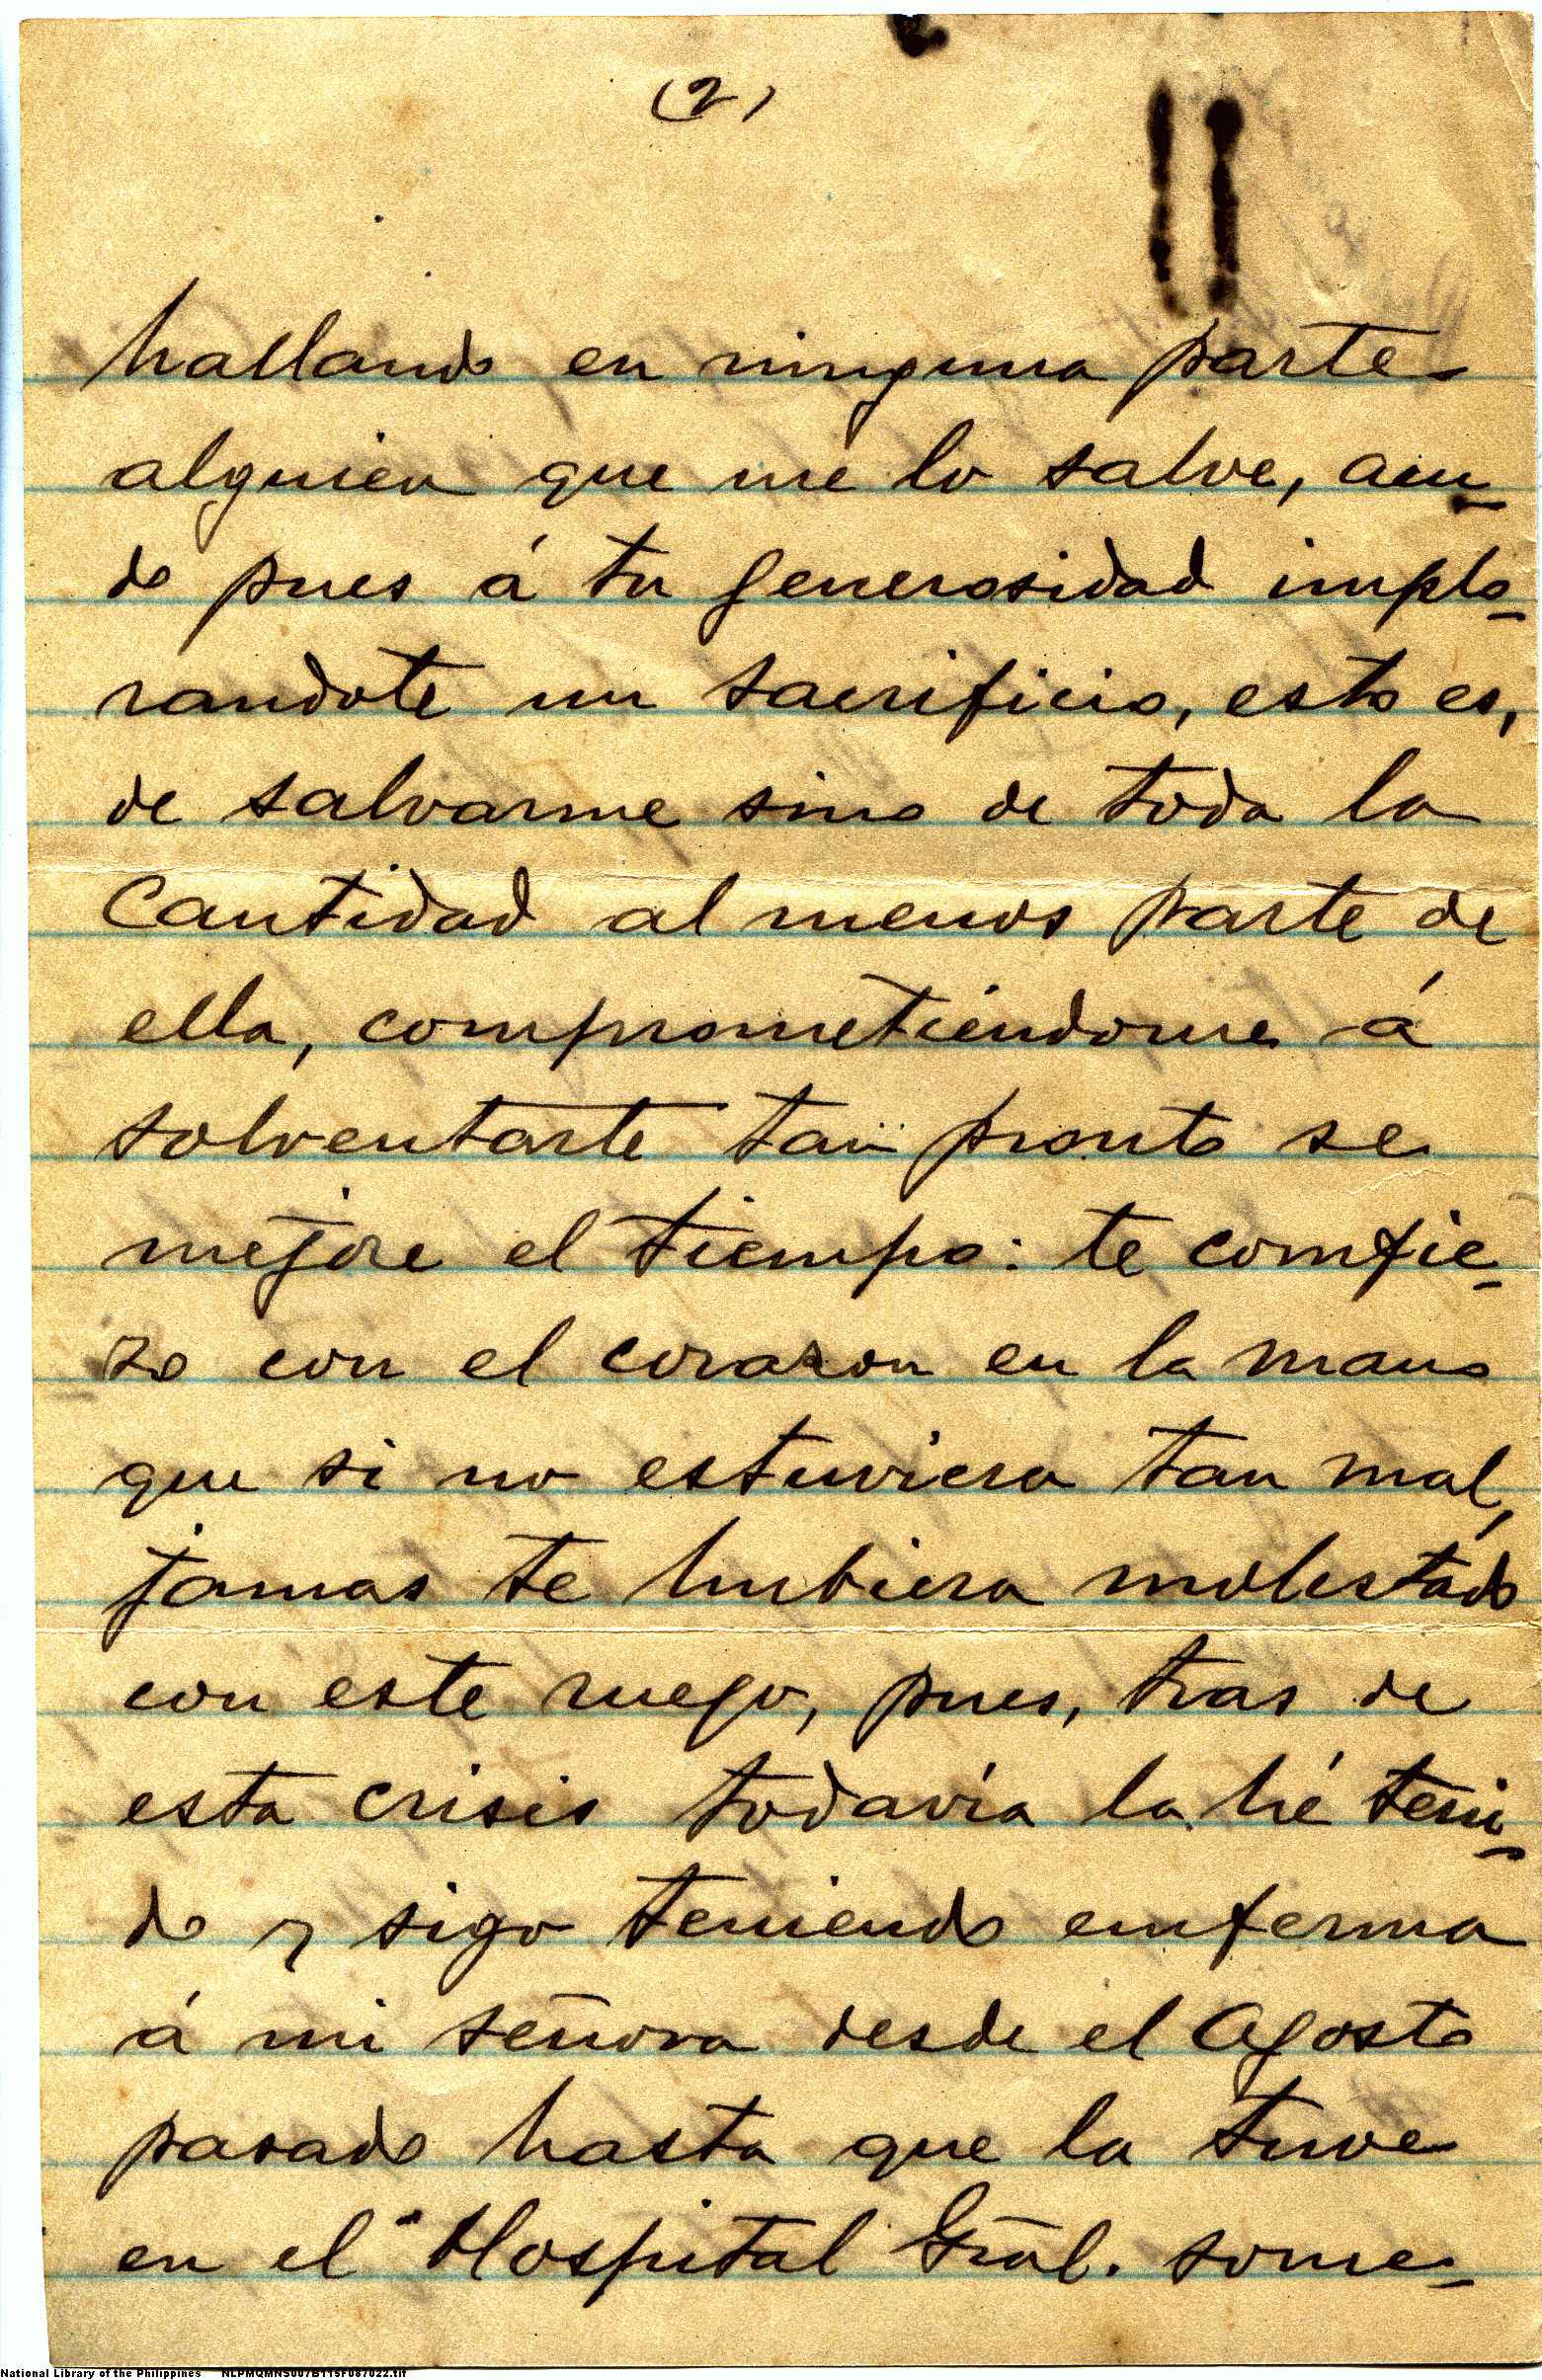 (2)
hallando en ninguna parte
alguien que me lo salve, acu-
do pues á tu generosidad implo-
randote un sacrificio, esto es,
de salvarme sino de toda la
Cantidad al menos parte de
ella, comprometiéndome á
solventarte tan pronto se
mejore el tiempo: te comfie-
zo con el corazon en la mano
que si no estuviera tan mal,
jamas te hubiera molestado
con este ruego, pues, tras de
esta crisis todavía la hé teni-
do y sigo teniendo emferma
á mi señora desde el Agosto
pasado hasta que la tuve
en el Hospital Gral. some-
National Library of the Philippines NLPMQMNS007B115F087022.tif